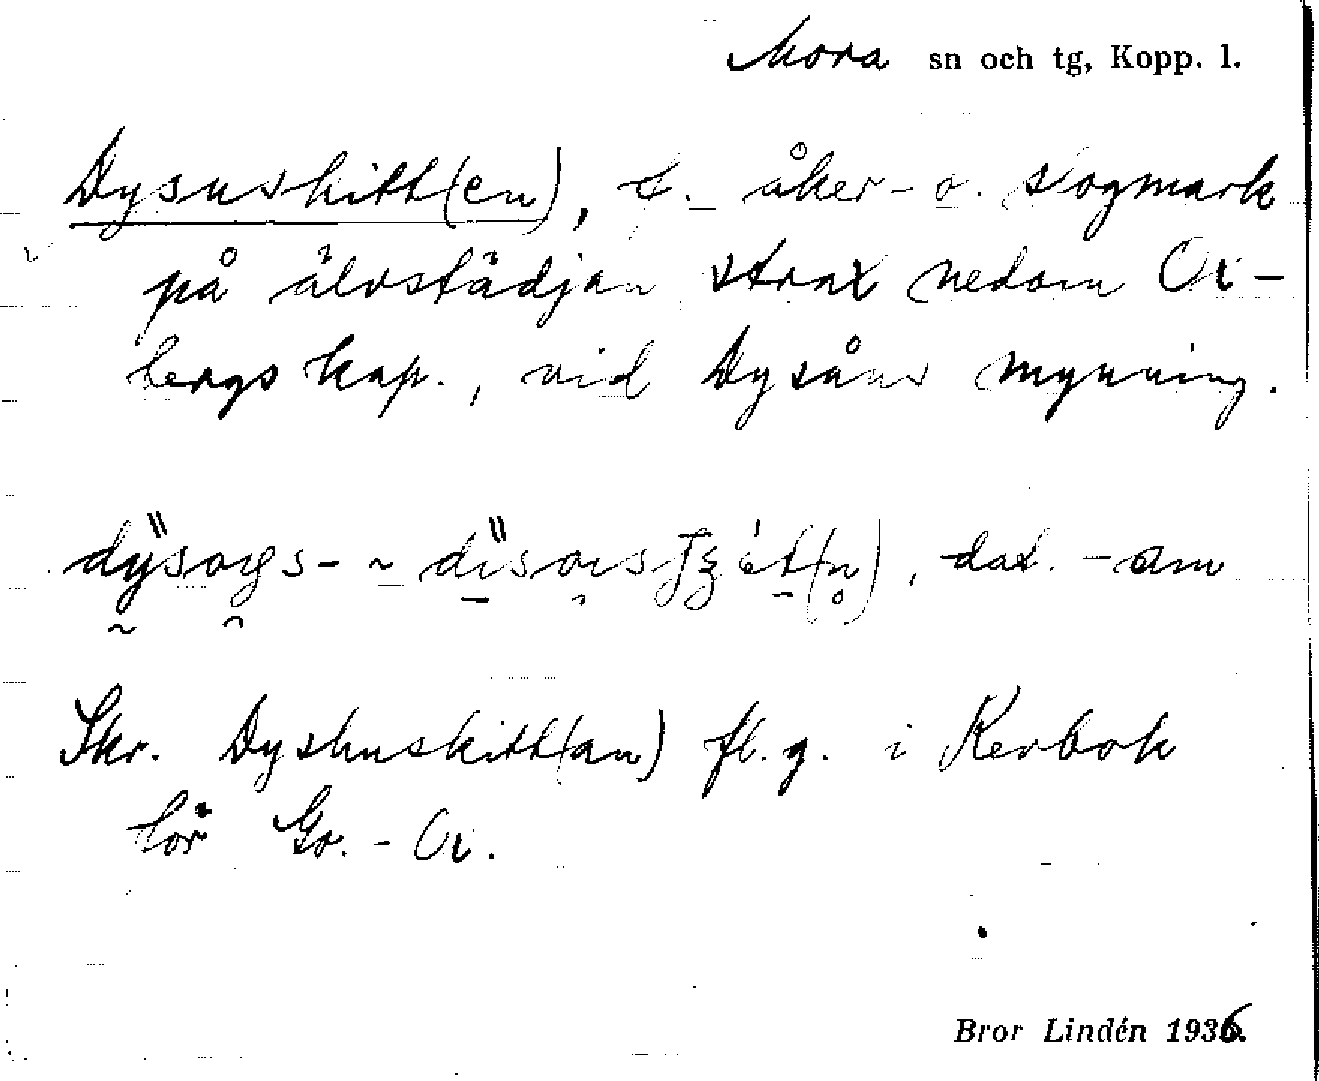 Mora sn och tg, Kopp. l.
Dysuskitt(en), t. åker- o. skogmark
på älvstädjan strax nedom Ox-
bergs kap., vid Dysåns mynning.
dat. -am
Skr. Dyshuskitt(an) fl. g. i Revbok
för Gr.-Ox.
Bror Lindén 1936.